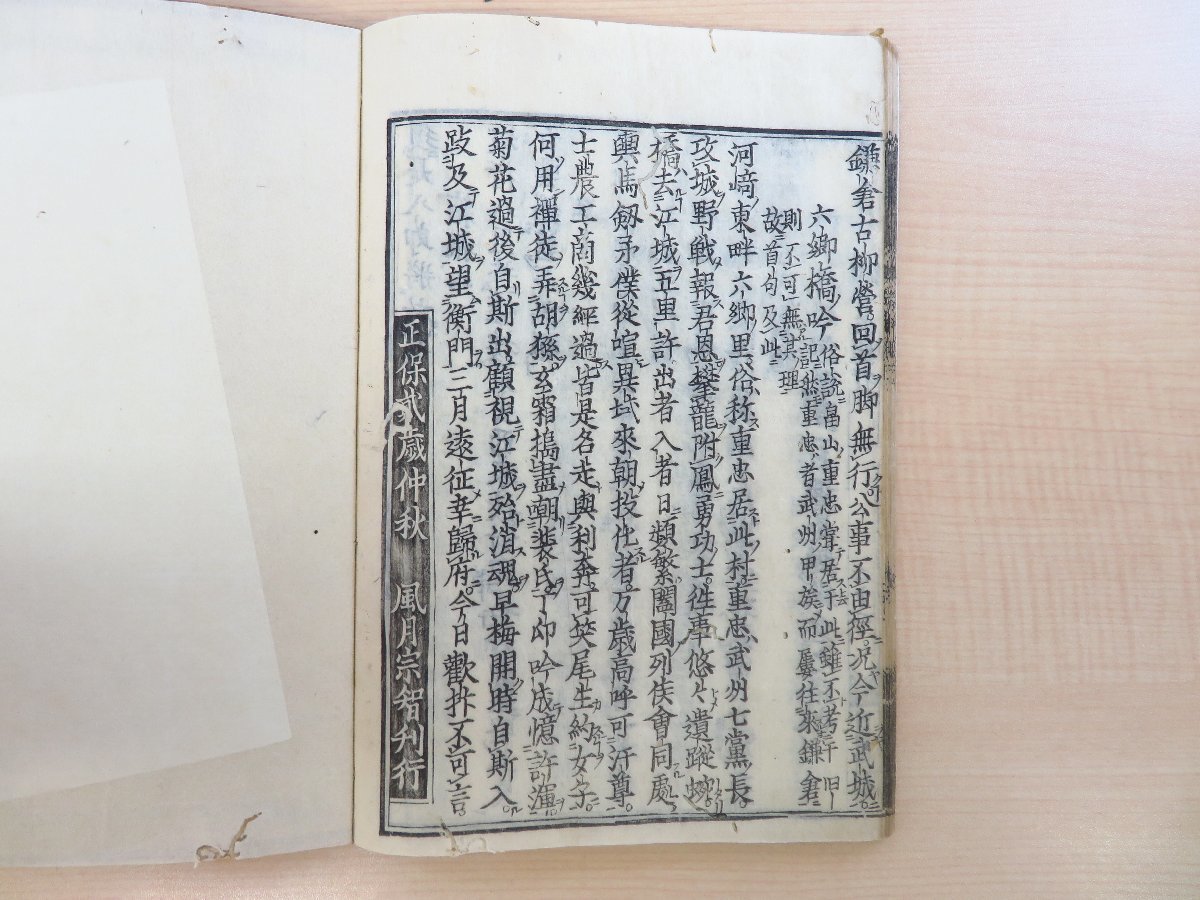 鎌倉古柳營回首脚無行公事不由徑況今近武城
六鄉橋吟俗說畠山重忠甞居于此雖不考于旧
記然重忠者武州甲族而屢往來鎌倉
則不可無其理
故首句及此
河﨑東畔六鄉里俗称重忠居此村重忠武州七黨長
攻城野戰報君恩攀龍附鳳勇功士徃事悠々遺蹤
橋去江城五里許出者入者日頻繁闔國列侯會同處
輿馬劔矛僕從喧異域來朝投化者万歲高呼可汗尊
士農工商幾經過皆是名走與利奔可笑尾生約女子
何用禪徒弄胡猻玄霜搗盡朝裴氏卬吟成憶許渾
菊花過後自斯出顧視江城殆消魂早梅開時自斯入
跂及江城望衡門三月遠征幸歸府今日歡抃不可言
正保貳歲仲秋 風月宗智刊行